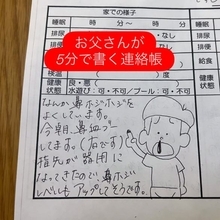 家での様子
睡眠 時 分〜 時 分
お父さんが
5分で書く連絡帳
検温 度
健康状態 水遊び：可・不可/プール：可・不可
なんか鼻ホジホジを
よくしています。
今朝、鼻血ブー
してます。(右です)
指先が器用に
なってきたので鼻ホジ
レベルもアップしてそうです。
睡眠
排便
排尿
給食
健康
状態